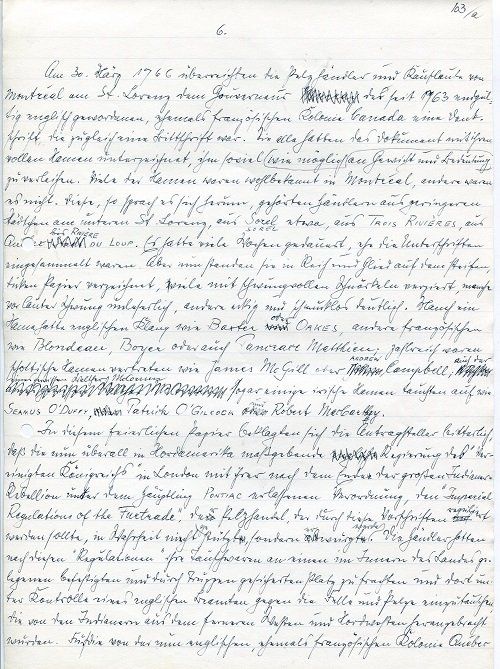 103/a
6.
Am 30. März 1766 überreichten die Pelzhändler und Kaufleute von
Montréal am St. Lorenz dem Gouverneur der seit 1763 endgül-
tig englisch gewordenen, ehemals französischen Kolonie Canada eine Denk-
schrift, die zugleich eine Bittschrift war. Sie alle hatten das Dokument mit ihren
vollen Namen unterzeichnet, ihm soviel wie möglich an Gewicht und Bedeutung
zu verleihen. Viele der Namen waren wohlbekannt in Montréal, andere waren
es nicht. Diese, so sprach es sich herum, gehörten Händlern aus geringeren
Städtchen am unteren St. Lorenz, aus Sorel etwa, aus TROIS RIVIÈRES, aus
SOREL
aus RIVIÈRE
DU LOUP. Es hatte viele Wochen gedauert, ehe die Unterschriften
eingesammelt waren. Aber nun standen sie in Reih und Glied auf dem steifen,
dicken Papier verzeichnet, viele mit schwungvollen Schnörkeln verziert, manche
vor lauter Schwung unleserlich, andere eckig und schmucklos deutlich. Manch ein
Name hatte englischen Klang wie Baxter oder OAKES, andere französischen
wie Blondeau, Boyer oder auch Matthieu; zahlreich waren
schottische Namen vertreten wie James McGill oder ANDREW Campbell, auch der
sogar einige irische Namen tauchten auf wie
SEAMUS O'DUFFY, Patrick O' oder Robert
In diesem feierlichen Papier beklagten sich die Antragsteller bitterlich,
daß die nun überall in Nordamerika maßgebende Regierung des "Ver-
einigten Königreichs" in London mit ihrer nach dem Ende der großen Indianer-
Rebellion unter dem Häuptling PONTIAC erlassenen Verordnung, den "Imperial
Regulations of the Furtrade" den Pelzhandel, der durch diese Vorschriften reguliert
werden sollte, in Wahrheit nicht, sondern abwürgte. Die Händler hatten
nach diesen "Regulationen" ihre Tauschwaren an einen im Innern des Landes ge-
legenen befestigten und durch Truppen gesicherten Platz zu frachten und dort un-
ter Kontrolle eines englischen Beamten gegen die Felle und Pelze einzutauschen
die von den Indianern aus dem ferneren Westen und Nordwesten herangebracht
wurden. Für die von der nun englischen, ehemals französischen Kolonie Quebec